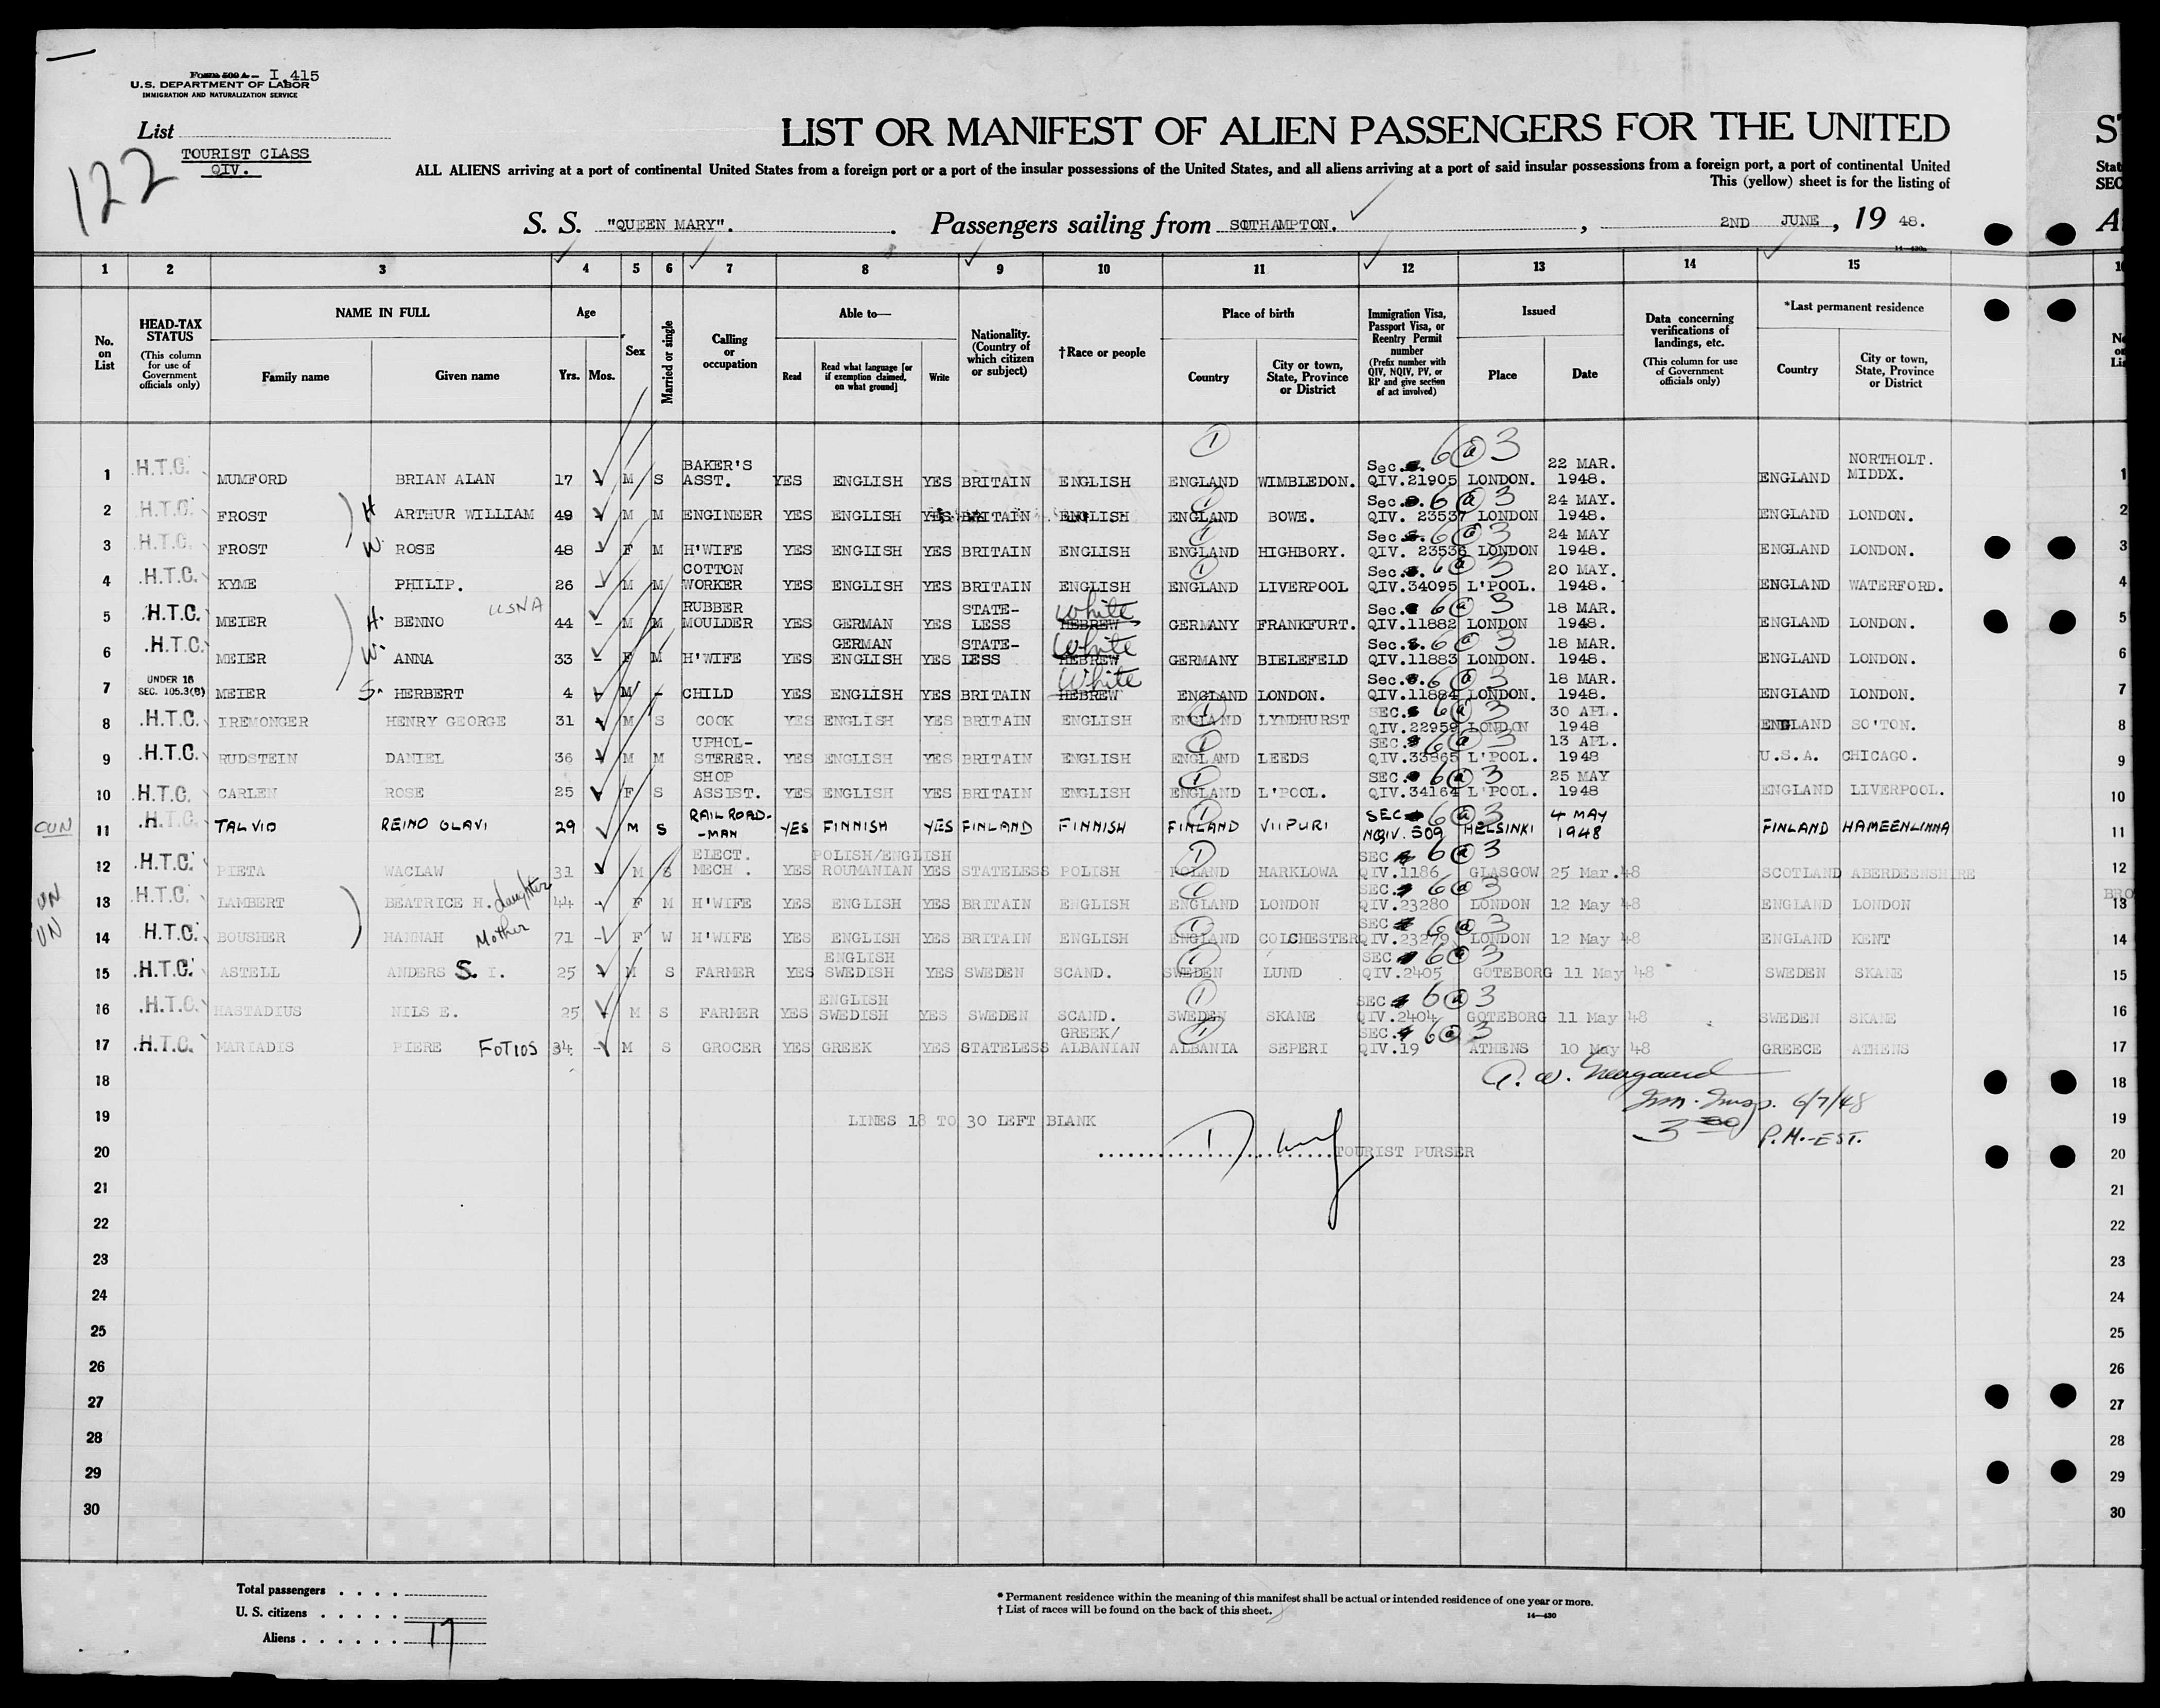 Form 500 A — I 415
U.S. DEPARTMENT OF LABOR
IMMIGRATION AND NATURALIZATION SERVICE
List
TOURIST CLASS
QIV.
122
LIST OR MANIFEST OF ALIEN PASSENGERS FOR THE UNITED
ALL ALIENS arriving at a port of continental United States from a foreign port or a port of the insular possessions of the United States, and all aliens arriving at a port of said insular possessions from a foreign port, a port of continental United
This (yellow) sheet is for the listing of
S. S. "QUEEN MARY". Passengers sailing from SOTHAMPTON. , 2ND JUNE , 19 48.
1 2 3 4 5 6 7 8 9 10 11 12 13 14 15
No. on List
HEAD-TAX STATUS (This column for use of Government officials only)
NAME IN FULL Family name Given name
Age Yrs. Mos.
Sex
Married or single
Calling or occupation
Able to— Read Read what language [or if exemption claimed, on what ground] Write
Nationality. (Country of which citizen or subject)
†Race or people
Place of birth Country City or town, State, Province or District
Immigration Visa, Passport Visa, or Reentry Permit number (Prefix number with QIV, NQIV, PV, or RP and give section of act involved)
Issued Place Date
Data concerning verifications of landings, etc. (This column for use of Government officials only)
*Last permanent residence Country City or town, State, Province or District
1 H.T.C. MUMFORD BRIAN ALAN 17 M S BAKER'S ASST. YES ENGLISH YES BRITAIN ENGLISH ENGLAND WIMBLEDON. Sec. 6@3 QIV.21905 LONDON. 22 MAR. 1948. ENGLAND NORTHOLT. MIDDX.
2 H.T.C. FROST H ARTHUR WILLIAM 49 M M ENGINEER YES ENGLISH YES BRITAIN ENGLISH ENGLAND BOWE. Sec. 6@3 QIV. 23537 LONDON 24 MAY. 1948. ENGLAND LONDON.
3 H.T.C. FROST W ROSE 48 F M H'WIFE YES ENGLISH YES BRITAIN ENGLISH ENGLAND HIGHBORY. Sec. 6@3 QIV. 23536 LONDON 24 MAY 1948. ENGLAND LONDON.
4 H.T.C. KYME PHILIP. 26 M M COTTON WORKER YES ENGLISH YES BRITAIN ENGLISH ENGLAND LIVERPOOL Sec. 6@3 QIV.34095 L'POOL. 20 MAY. 1948. ENGLAND WATERFORD.
5 H.T.C. MEIER H. BENNO USNA 44 M M RUBBER MOULDER YES GERMAN YES STATE-LESS White HEBREW GERMANY FRANKFURT. Sec. 6@3 QIV.11882 LONDON 18 MAR. 1948. ENGLAND LONDON.
6 H.T.C. MEIER W. ANNA 33 F M H'WIFE YES GERMAN ENGLISH YES STATE-LESS White HEBREW GERMANY BIELEFELD Sec. 6@3 QIV.11883 LONDON. 18 MAR. 1948. ENGLAND LONDON.
7 UNDER 16 SEC. 105.3(B) MEIER S. HERBERT 4 M - CHILD YES ENGLISH YES BRITAIN White HEBREW ENGLAND LONDON. Sec. 6@3 QIV.11884 LONDON. 18 MAR. 1948. ENGLAND LONDON.
8 H.T.C. IREMONGER HENRY GEORGE 31 M S COOK YES ENGLISH YES BRITAIN ENGLISH ENGLAND LYNDHURST SEC. 6@3 QIV.22959 LONDON 30 APL. 1948 ENGLAND SO'TON.
9 H.T.C. RUDSTEIN DANIEL 36 M M UPHOL-STERER. YES ENGLISH YES BRITAIN ENGLISH ENGLAND LEEDS SEC. 6@3 QIV.33865 L'POOL. 13 APL. 1948 U.S.A. CHICAGO.
10 H.T.C. CARLEN ROSE 25 F S SHOP ASSIST. YES ENGLISH YES BRITAIN ENGLISH ENGLAND L'POOL. SEC. 6@3 QIV.34164 L'POOL. 25 MAY 1948 ENGLAND LIVERPOOL.
CUN 11 H.T.C. TALVIO REINO OLAVI 29 M S RAILROAD--MAN YES FINNISH YES FINLAND FINNISH FINLAND VIIPURI SEC 6@3 NQIV. 309 HELSINKI 4 MAY 1948 FINLAND HAMEENLINNA
12 H.T.C. PIETA WACLAW 31 M S ELECT. MECH. YES POLISH/ENGLISH ROUMANIAN YES STATELESS POLISH POLAND HARKLOWA SEC 6@3 QIV.1186 GLASGOW 25 Mar.48 SCOTLAND ABERDEENSHIRE
UN 13 H.T.C. LAMBERT BEATRICE H. daughter 44 F M H'WIFE YES ENGLISH YES BRITAIN ENGLISH ENGLAND LONDON SEC. 6@3 QIV.23280 LONDON 12 May 48 ENGLAND LONDON
UN 14 H.T.C. BOUSHER HANNAH Mother 71 F W H'WIFE YES ENGLISH YES BRITAIN ENGLISH ENGLAND COLCHESTER SEC 6@3 QIV.23279 LONDON 12 May 48 ENGLAND KENT
15 H.T.C. ASTELL ANDERS S. I. 25 M S FARMER YES ENGLISH SWEDISH YES SWEDEN SCAND. SWEDEN LUND SEC 6@3 QIV.2405 GOTEBORG 11 May 48 SWEDEN SKANE
16 H.T.C. HASTADIUS NILS E. 25 M S FARMER YES ENGLISH SWEDISH YES SWEDEN SCAND. SWEDEN SKANE SEC 6@3 QIV.2404 GOTEBORG 11 May 48 SWEDEN SKANE
17 H.T.C. MARIADIS PIERE FOTIOS 34 M S GROCER YES GREEK YES STATELESS GREEK/ALBANIAN ALBANIA SEPERI SEC. 6@3 QIV.19 ATHENS 10 May 48 GREECE ATHENS
18
Imm. Insp. 6/7/48
19 LINES 18 TO 30 LEFT BLANK
P.M.-EST.
20 TOURIST PURSER
21
22
23
24
25
26
27
28
29
30
Total passengers
U. S. citizens
Aliens 17
* Permanent residence within the meaning of this manifest shall be actual or intended residence of one year or more.
† List of races will be found on the back of this sheet.
14—430